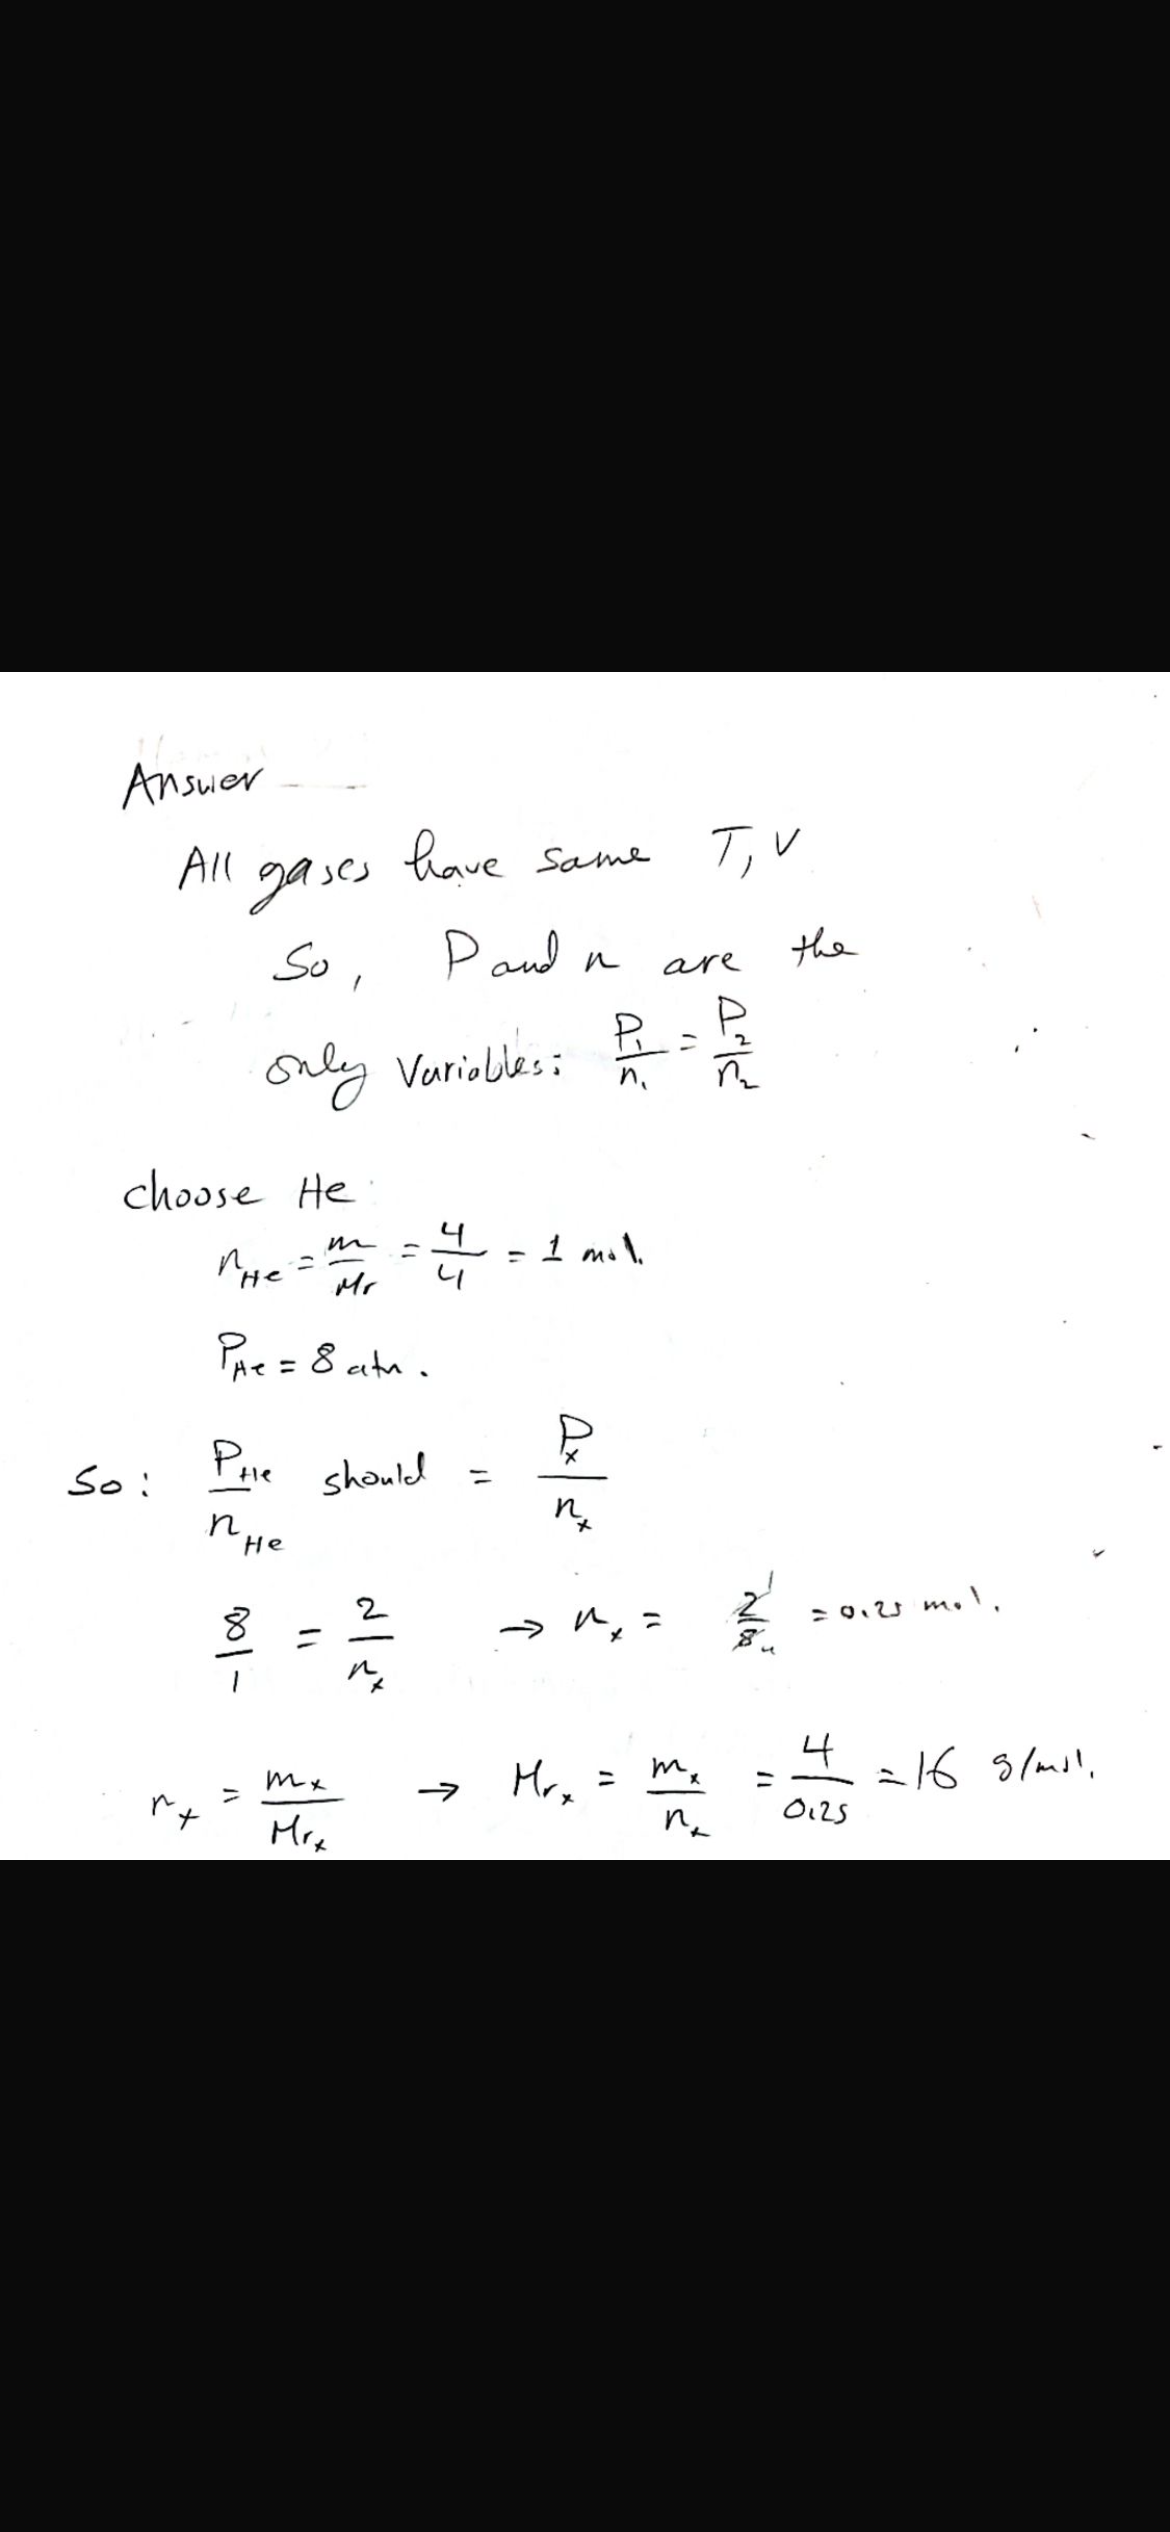 Answer
All gases have same T, V
So, P and n are the
only variables: P₁/n₁ = P₂/n₂
choose He
n_He = m/Mr = 4/4 = 1 mol.
P_He = 8 atm.
So: P_He/n_He should = P_x/n_x
8/1 = 2/n_x → n_x = 2/8 = 0.25 mol.
n_x = m_x/Mr_x → Mr_x = m_x/n_x = 4/0.25 = 16 g/mol.